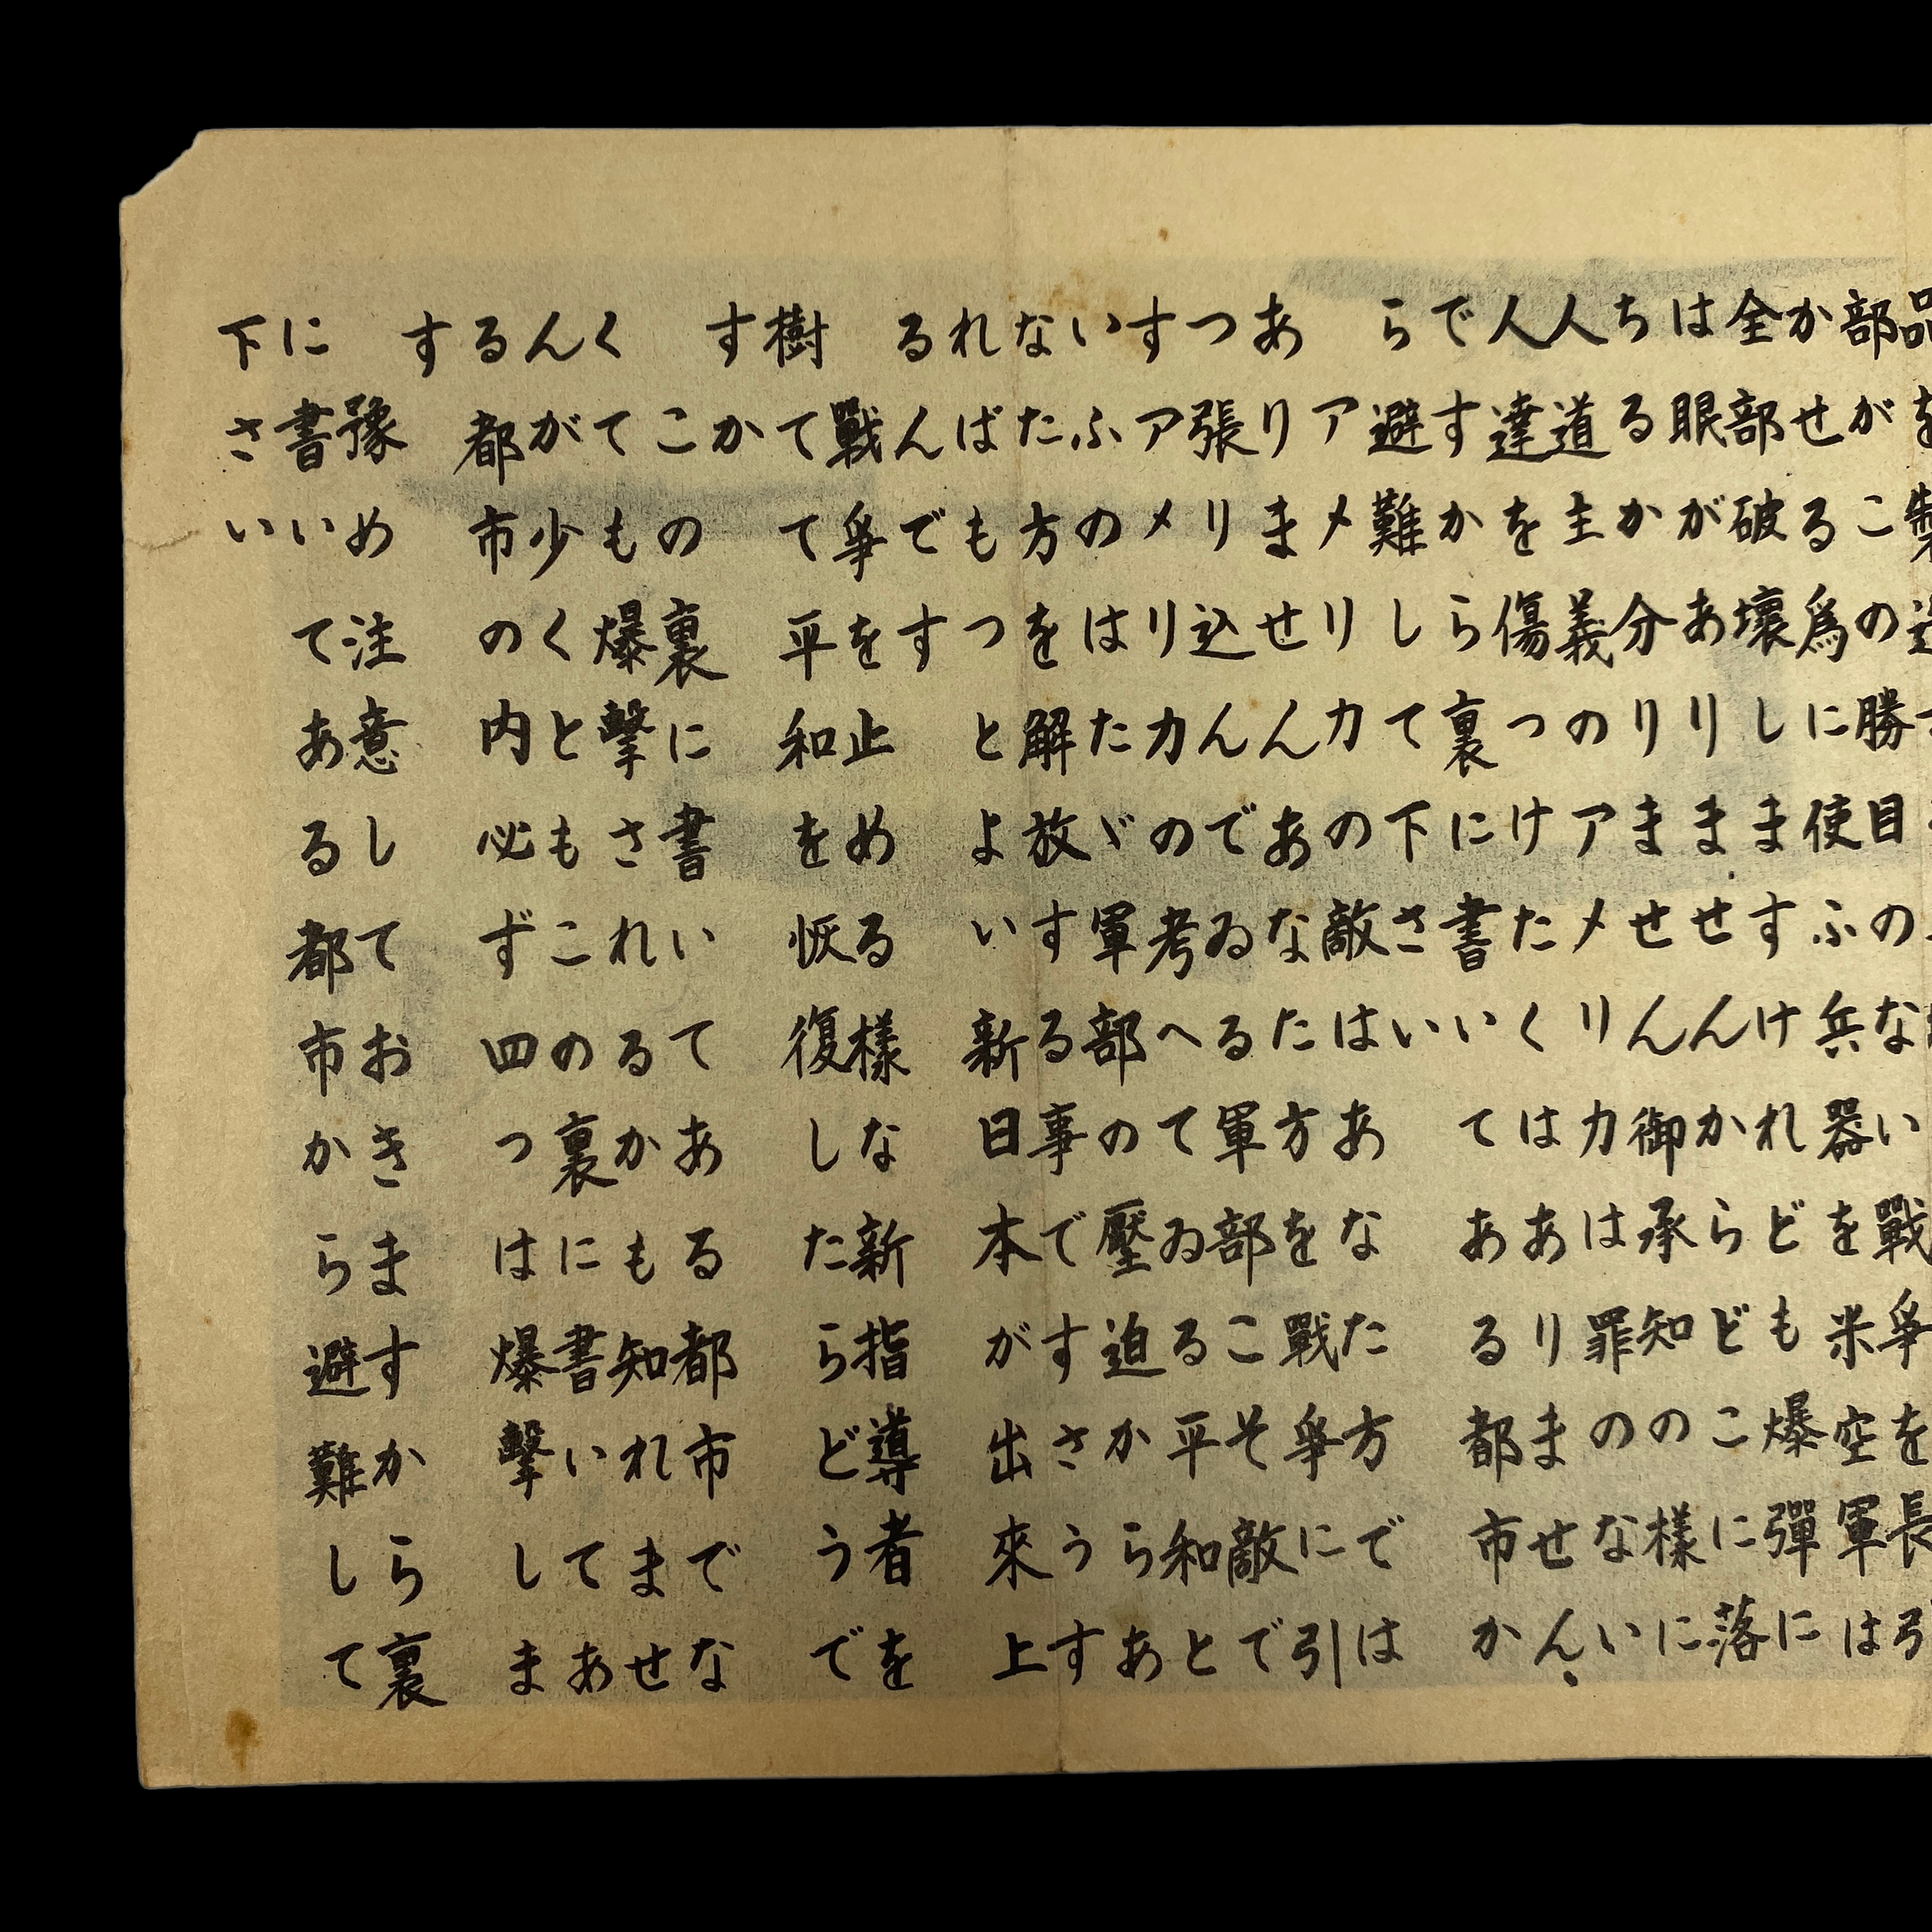 品を製造
部がこの勝目のない戰爭を長引
かせる爲に使ふ兵器を米空軍は
全部破壞しますけれども爆彈に
は眼がありませんからどこに落
ちるか分りません御承知の樣に
人道主義のアメリカは罪のない
人達を傷つけたくはありません、
ですから裏に書いてある都市か
ら避難して下さい
アメリカの敵はあなた方では
ありませんあなた方を戰爭に引
つ張り込んでゐる軍部こそ敵で
すアメリカの考へてゐる平和と
いふのはたゞ軍部の壓迫からあ
なた方を解放する事ですさうす
ればもつとよい新日本が出來上
るんです
戰爭を止める樣な新指導者を
樹てて平和を恢復したらどうで
すか
この裏に書いてある都市でな
くても爆擊されるかも知れませ
んが少くともこの裏に書いてあ
る都市の内必ず四つは爆擊しま
す
豫め注意しておきますから裏
に書いてある都市から避難して
下さい